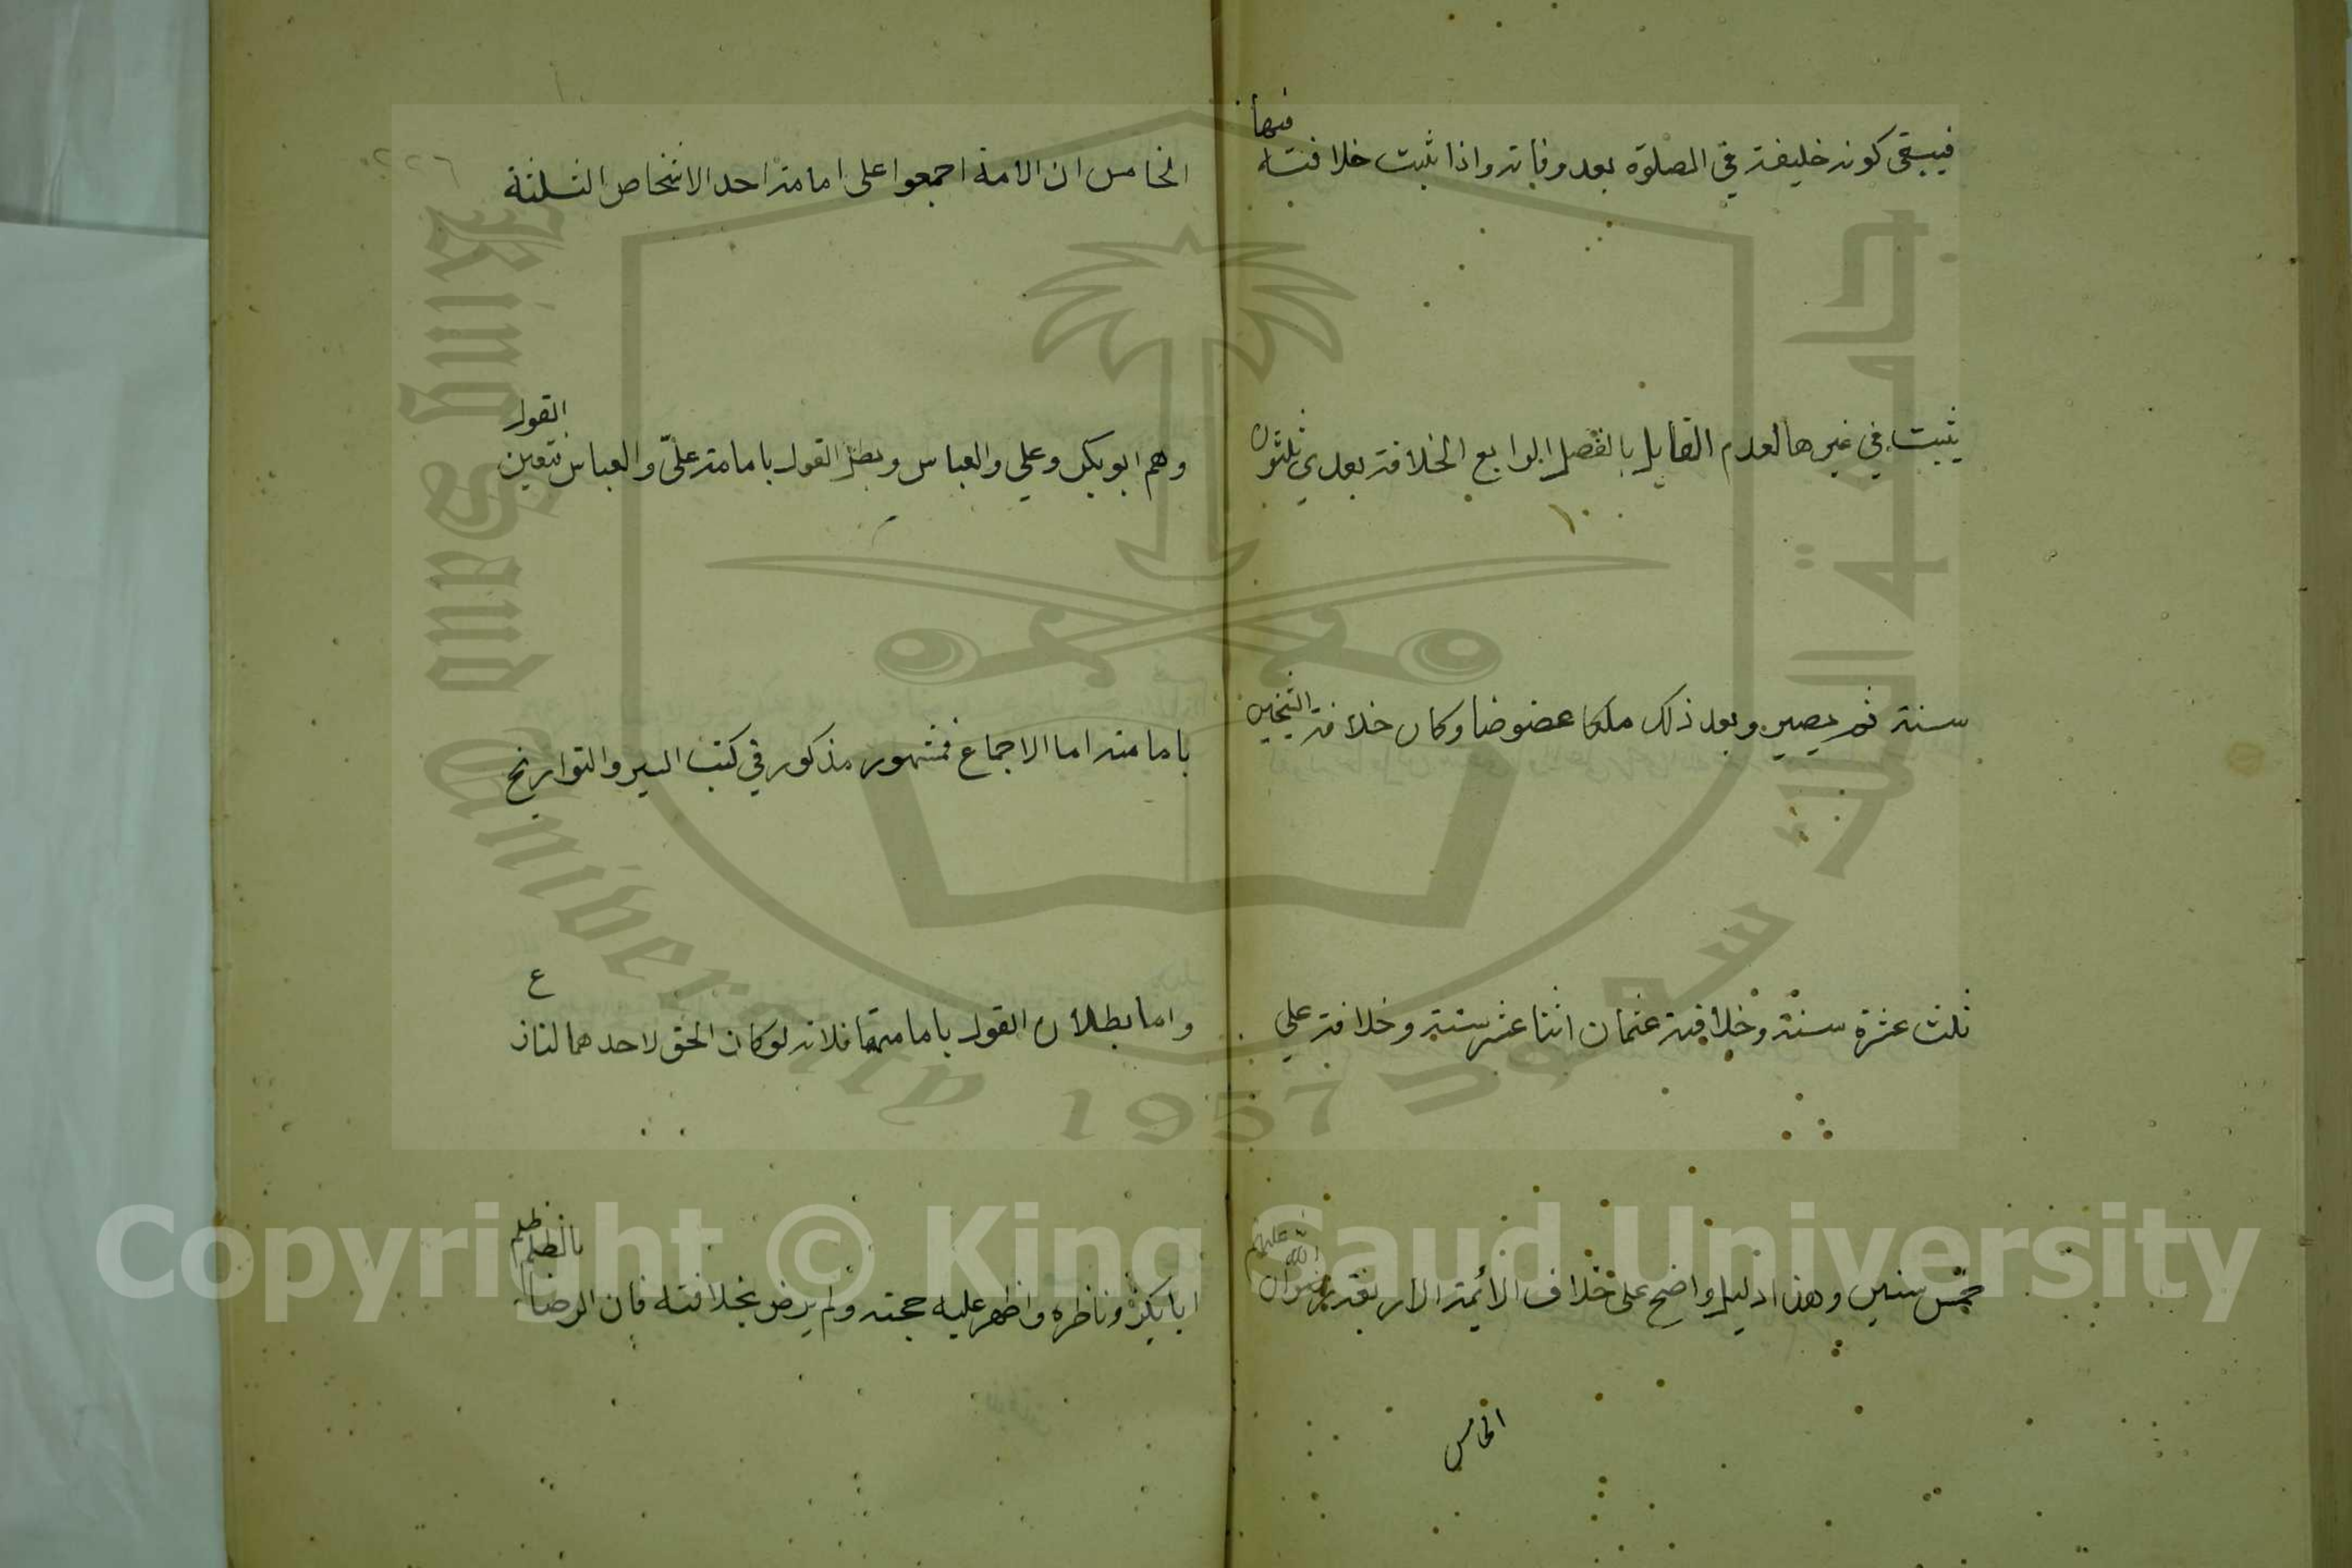 فيبقى كونه خليفة في الصلوة بعد وفاته واذا ثبت خلافته فيها
يثبت في غيرها لعدم القايل بالفصل الرابع الخلافة بعدي ثلثون
سنة ثم يصير وبعد ذلك ملكا عضوضا وكان خلافة الشيخين
ثلث عشرة سنة وخلافة عثمان اثنا عشر سنة وخلافة علي
خمس سنين وهذا دليل واضح على خلاف الائمة الاربعة رضوان الله عليهم
الخامس
٢٢٦
الخامس ان الامة اجمعوا على امامة احد الاشخاص الثلثة
وهم ابو بكر وعلي والعباس وبطل القول بامامة عليّ والعباس فتعين القول
بامامته اما الاجماع فمشهور مذكور في كتب السير والتواريخ
واما بطلان القول بامامتهما فلانه لو كان الحق لاحدهما لنازع
ابا بكر وناظره واظهر عليه حجته ولم يرض بخلافته فان الرضا بالظلم ظلم
جامعة الملك سعود
King Saud University
1957
Copyright © King Saud University